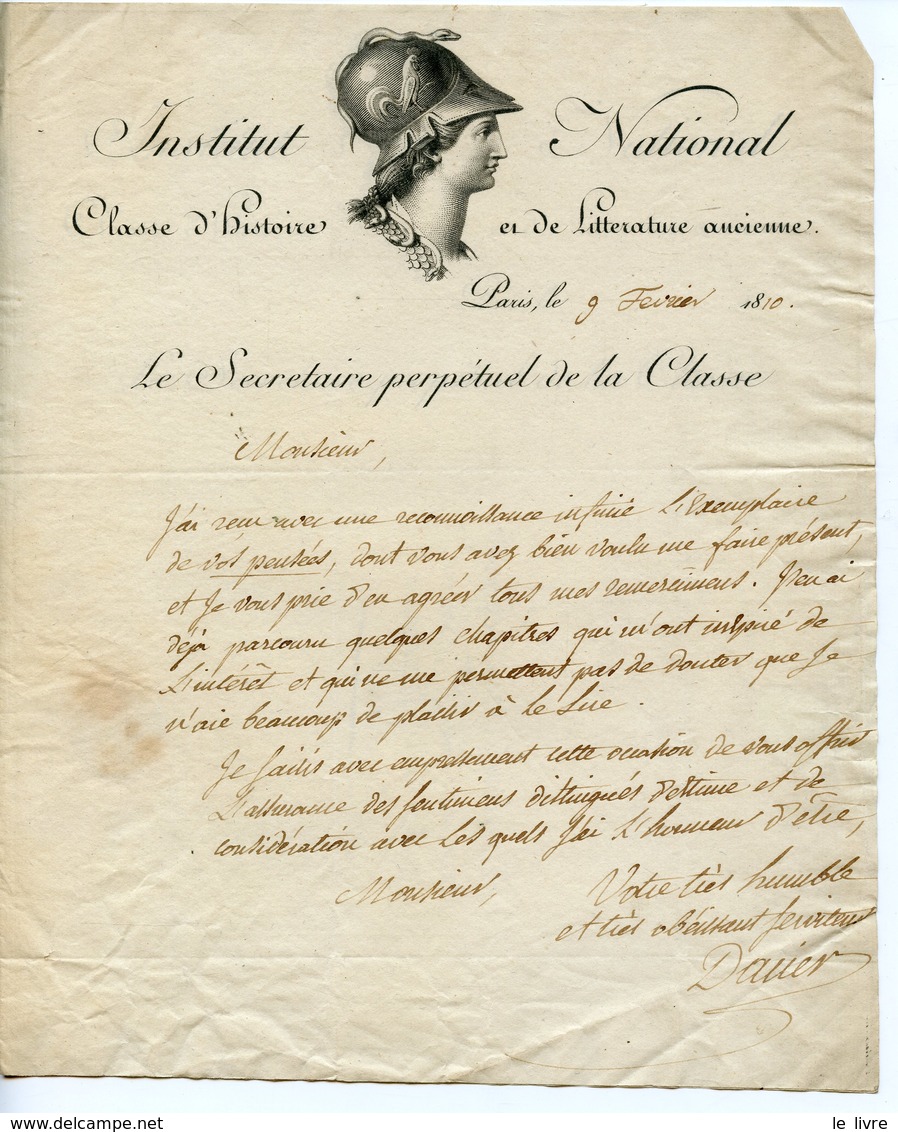 Institut National
Classe d'histoire et de Litterature ancienne.
Paris, le 9 Fevrier 1810.
Le Secretaire perpétuel de la Classe
Monsieur,
J'ai reçu avec une reconnoissance infinie L'Exemplaire
de vos pensées, dont vous avez bien voulu me faire présent,
et Je vous prie d'en agréer tous mes remercimens. J'en ai
déja parcouru quelques chapitres qui m'ont inspiré de
L'intérêt et qui ne me permettent pas de douter que Je
n'aie beaucoup de plaisir à Le Lire.
Je saisis avec empressement cette occasion de vous offrir
L'assurance des sentimens distingués d'estime et de
considération avec Les quels J'ai L'honneur d'être,
Monsieur,
Votre très humble
et très obéissant serviteur
Dacier
le livre